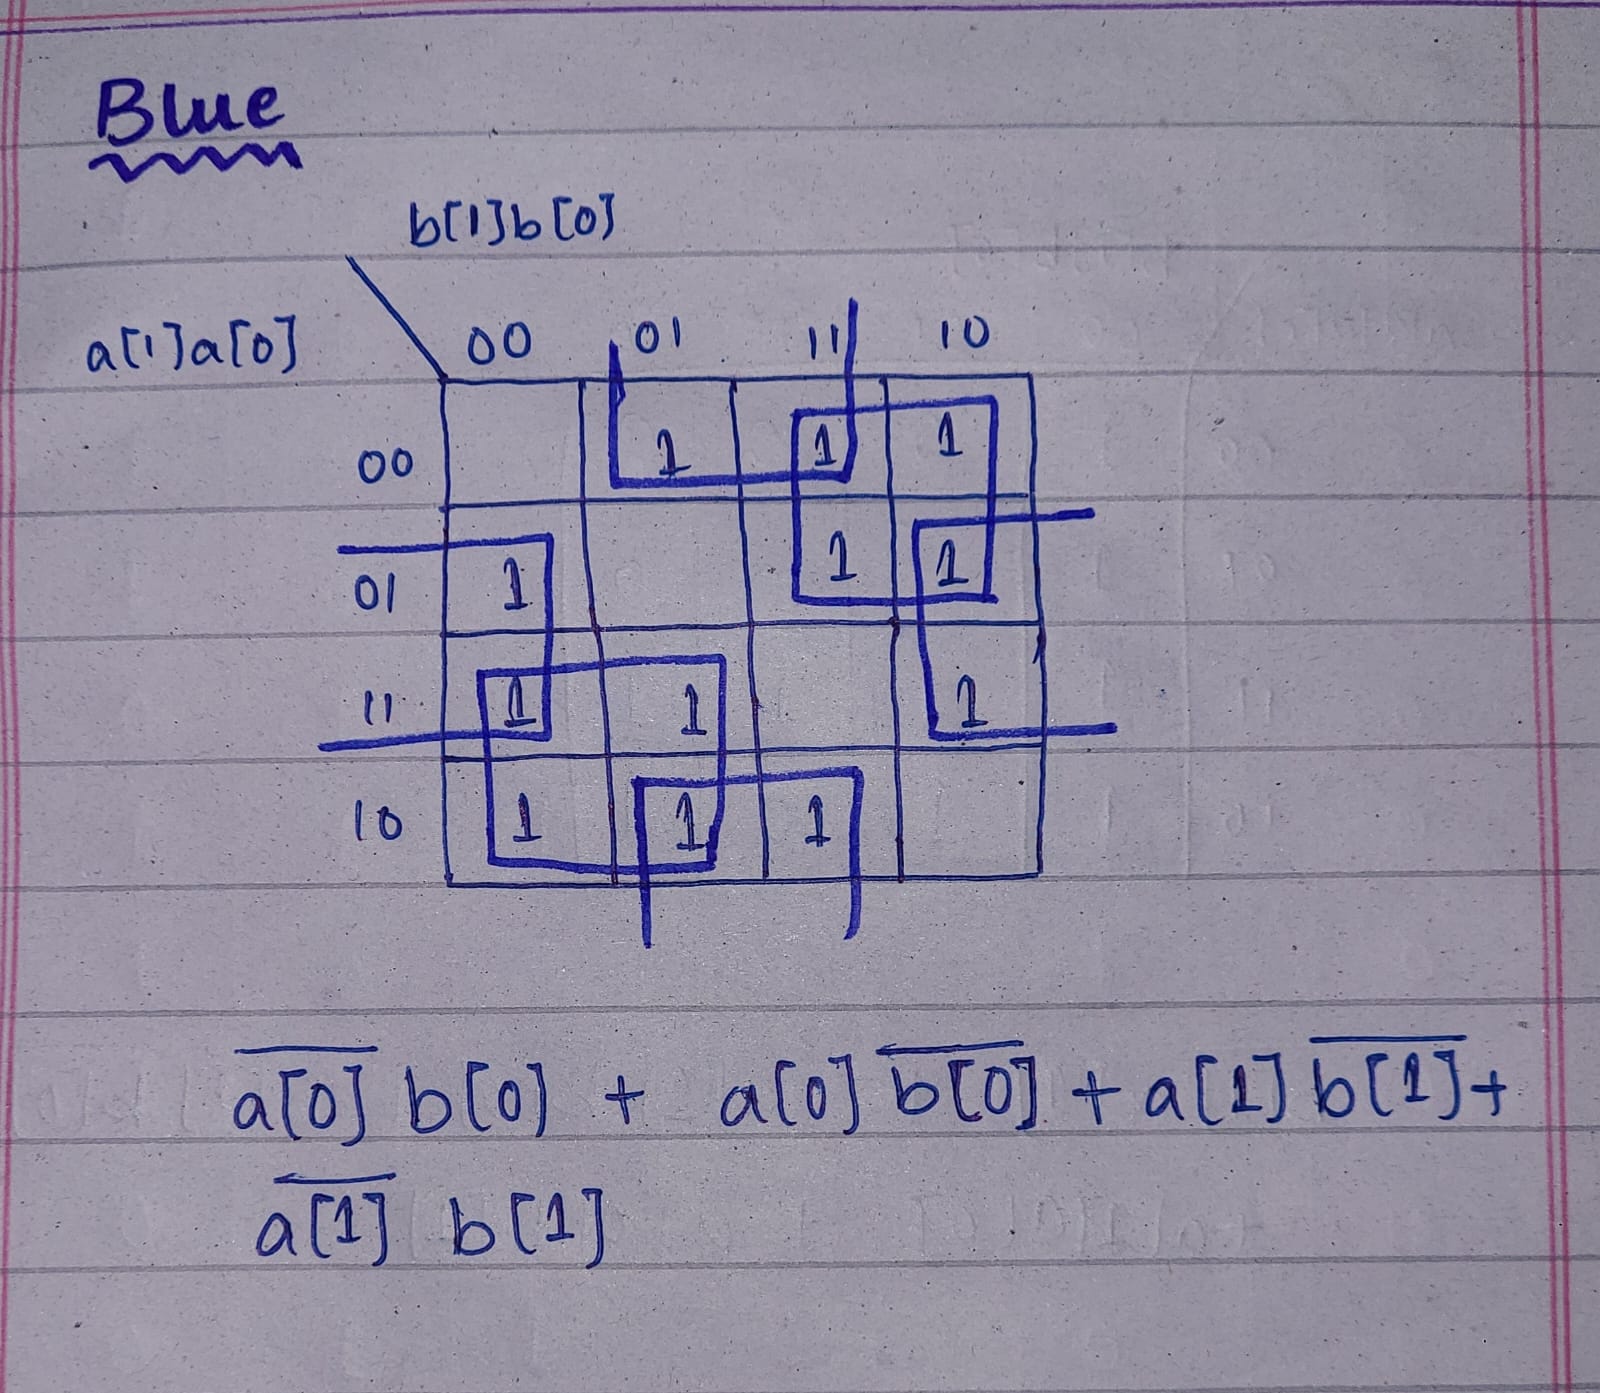 Blue
b[1]b[0]
a[1]a[0] 00 01 11 10
00 1 1 1
01 1 1 1
11 1 1 1
10 1 1 1
a̅[̅0̅]̅ b[0] + a[0] b̅[̅0̅]̅ + a[1] b̅[̅1̅]̅ +
a̅[̅1̅]̅ b[1]